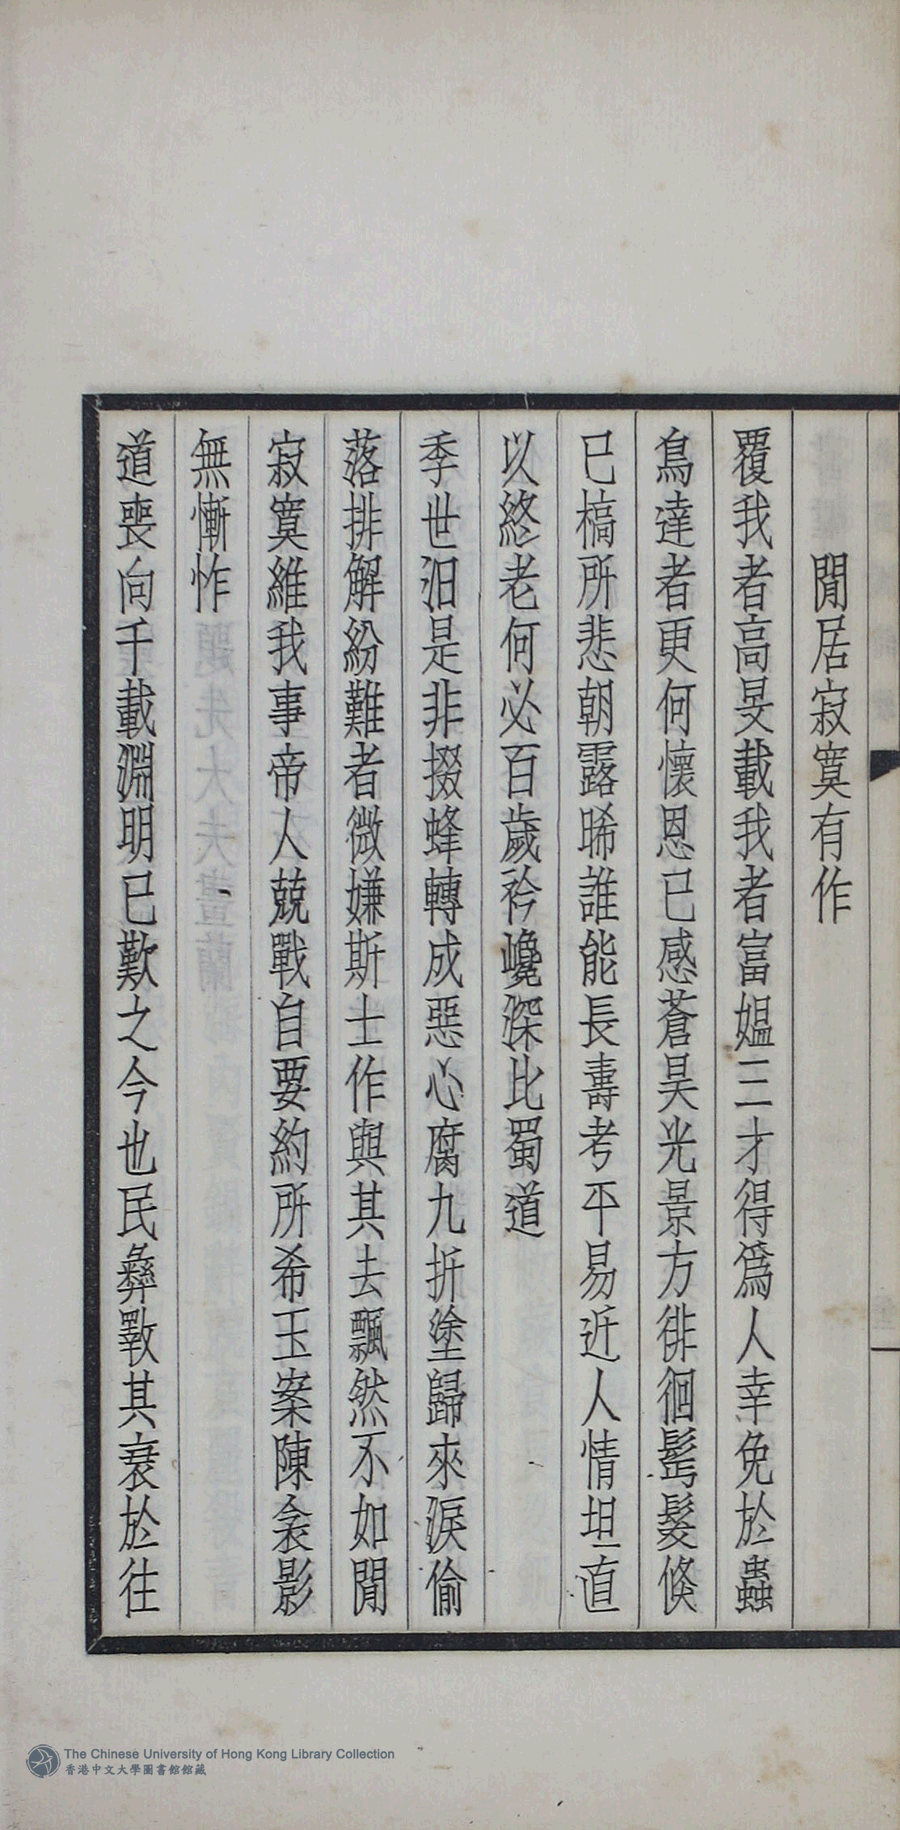 閒居寂寞有作
覆我者高旻載我者富媼三才得爲人幸免於蟲
鳥達者更何懷恩已感蒼昊光景方徘徊髩髮倏
已槁所悲朝露晞誰能長壽考平易近人情坦直
以終老何必百歲矜巉深比蜀道
季世汨是非掇蜂轉成惡心腐九折塗歸來淚偷
落排解紛難者微嫌斯士作與其去飄然不如閒
寂寞維我事帝人兢戰自要約所希玉案陳衾影
無慚怍
道喪向千載淵明已歎之今也民彝斁其衰於往
The Chinese University of Hong Kong Library Collection
香港中文大學圖書館館藏